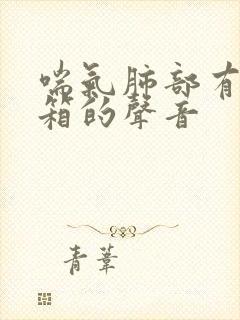 喘氣肺部有
箱的聲音
青葦